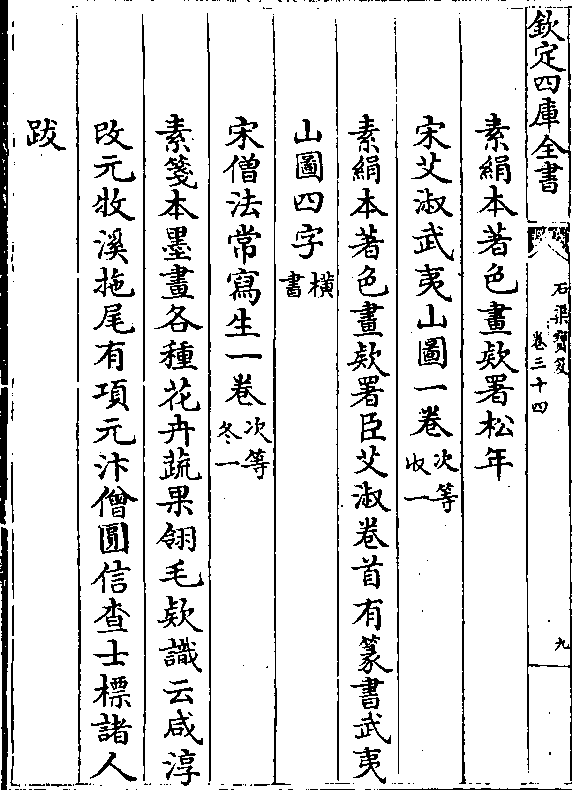 欽定四庫全書
石渠寶笈
卷三十四
九
素絹本著色畫欵署松年
宋艾淑武夷山圖一卷次等收一
素絹本著色畫欵署臣艾淑卷首有篆書武夷
山圖四字橫書
宋僧法常寫生一卷次等冬一
素箋本墨畫各種花卉蔬果翎毛欵識云咸淳
改元牧溪拖尾有項元汴僧圓信查士標諸人
跋